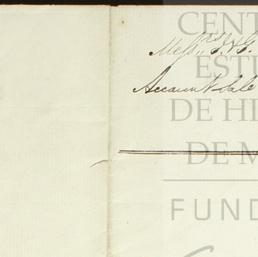 CENT
Mess.rs J. & G.
ESTU
Account Sale
DE HI
DE M
FUND